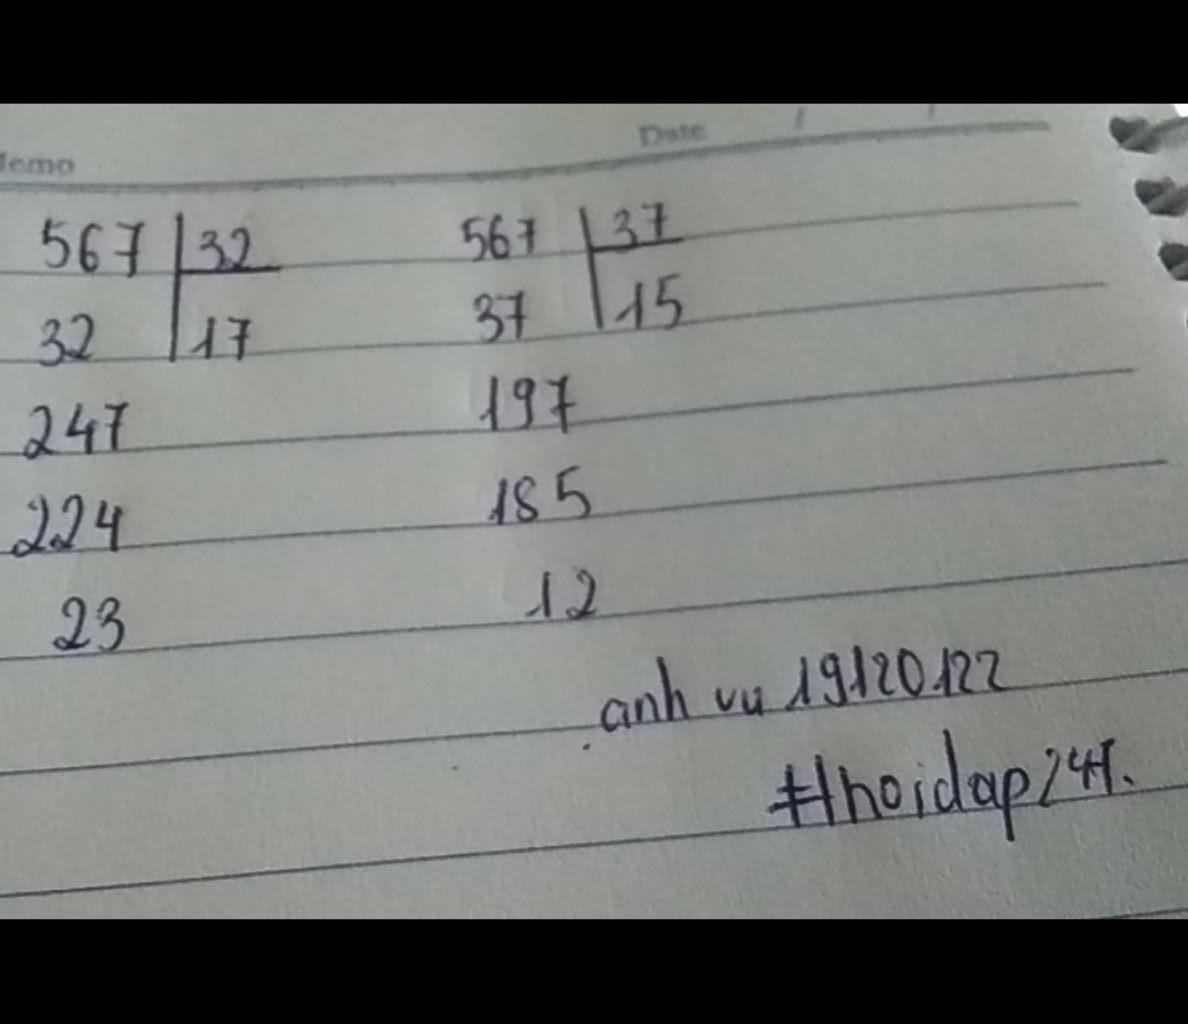 Memo Date / /
567 32 567 37
32 17 37 15
247 197
224 185
23 12
anh vu 19120122
#hoidap247.